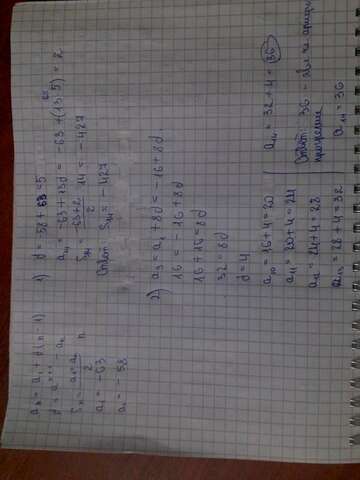 aₙ = a₁ + d(n-1)
d = aₙ₊₁ - aₙ
Sₙ = (a₁ + aₙ)/2 n
a₁ = -63
a₂ = -58
1) d = -58 + 63 = 5
a₁₄ = -63 + 13d = -63 + (13·5) = 2
S₁₄ = (-63+2)/2 14 = -427
Ответ: S₁₄ = -427
2) a₉ = a₁ + 8d = -16 + 8d
16 = -16 + 8d
16 + 16 = 8d
32 = 8d
d = 4
a₁₀ = 16 + 4 = 20
a₁₁ = 20 + 4 = 24
a₁₂ = 24 + 4 = 28
a₁₃ = 28 + 4 = 32
a₁₄ = 32 + 4 = 36
Ответ: 36
прогрессии
a₁₄ = 36